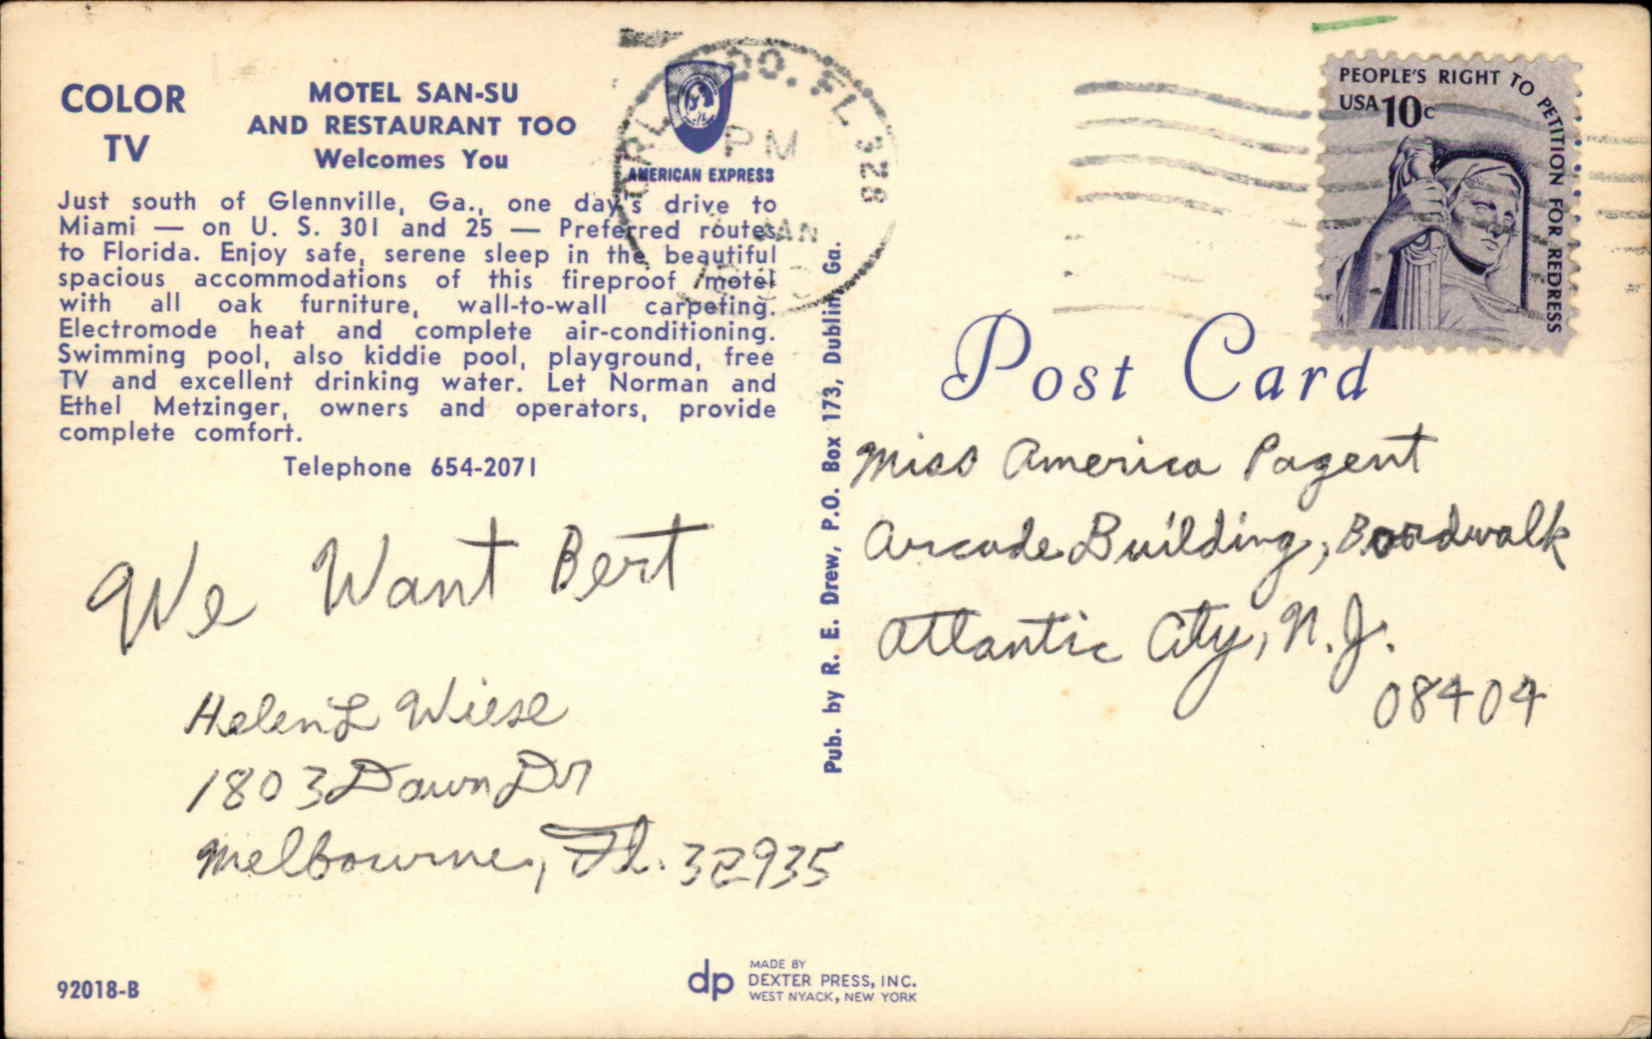 COLOR
TV
MOTEL SAN-SU
AND RESTAURANT TOO
Welcomes You
AMERICAN EXPRESS
Just south of Glennville, Ga., one day's drive to
Miami — on U. S. 301 and 25 — Preferred routes
to Florida. Enjoy safe, serene sleep in the beautiful
spacious accommodations of this fireproof motel
with all oak furniture, wall-to-wall carpeting.
Electromode heat and complete air-conditioning.
Swimming pool, also kiddie pool, playground, free
TV and excellent drinking water. Let Norman and
Ethel Metzinger, owners and operators, provide
complete comfort.
Telephone 654-2071
We Want Bert
Helen L Wiese
1803 Dawn Dr
Melbourne, Fl. 32935
92018-B
dp
MADE BY
DEXTER PRESS, INC.
WEST NYACK, NEW YORK
Pub. by R. E. Drew, P.O. Box 173, Dublin, Ga.
FL 328
PM
JAN
PEOPLE'S RIGHT TO PETITION FOR REDRESS
USA 10c
Post Card
Miss America Pagent
Arcade Building, Boardwalk
Atlantic City, N.J.
08404